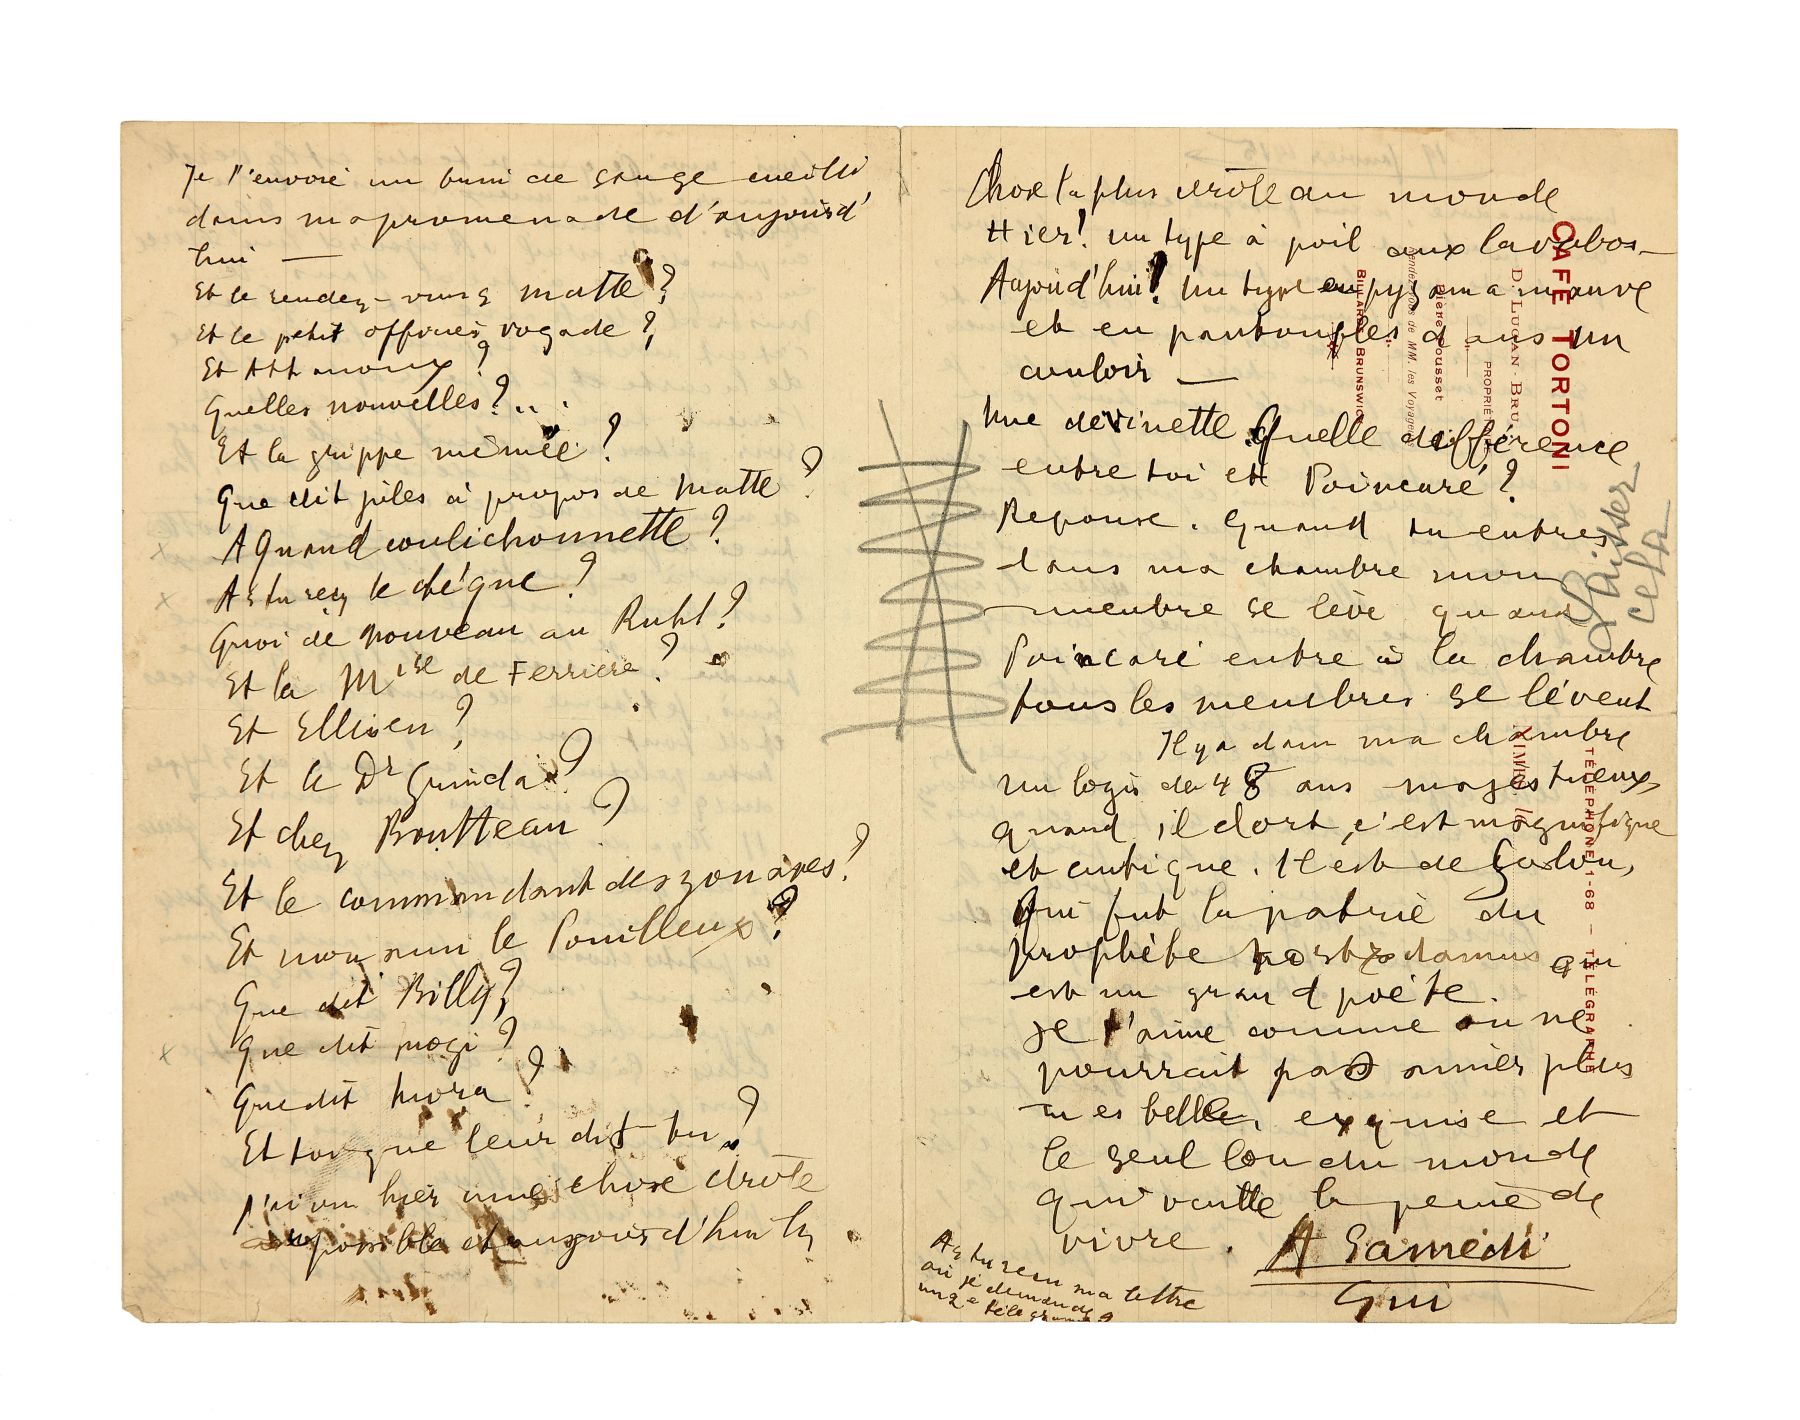 Je t'envoie un brin de sauge cueilli
dans ma promenade d'aujourd'
hui —
Et le rendez-vous Matte?
Et le petit offoués vogade?
Et
Quelles nouvelles?...
Et la grippe mémée?
Que dit jiles à propos de Matte?
A quand coulichonnette?
As tu reçu le chèque?
Quoi de nouveau au Ruhl?
Et la Mise de Ferriera?
Et Ellisen?
Et le Dr Guinda?
Et chez Boutteau?
Et le commandant des zouaves?
Et mon ami le Pouilleux?
Que dit Billy?
Que dit mogi?
Que dit Mora?
Et toi que leur dis tu?
J'ai vu hier une chose drôle
possible et aujourd'hui la
Chose la plus drôle du monde
Hier! un type à poil aux lavabos —
Aujoud'hui! Un type en pyjama mauve
et en pantoufles dans un
couloir —
Une devinette Quelle différence
entre toi et Poincaré?
Reponse. Quand tu entres
dans ma chambre mon
membre se lève quand
Poincaré entre à la chambre
tous les membres se lèvent
Il y a dans ma chambre
un logis de 48 ans majestueux,
quand il dort, c'est magnifique
et antique. Il est de Salon,
qui fut la patrie du
prophète Nostradamus qui
est un grand poète.
Je t'aime comme on ne
pourrait pas aimer plus
tu es belle, exquise et
le seul lou du monde
qui vaille la peine de
vivre. A Samedi
Gui
As tu reçu ma lettre
où je demande
un 2e télégramme?
Laisser
cela
CAFÉ TORTONI
D. LUCIAN-BRUN
PROPRIÉ
Pierre Rousset
Rendez-vous de MM. les Voyageurs
BILLARDS BRUNSWICK
NIMES, le
TÉLÉPHONE 1-68 — TÉLÉGRAPHE